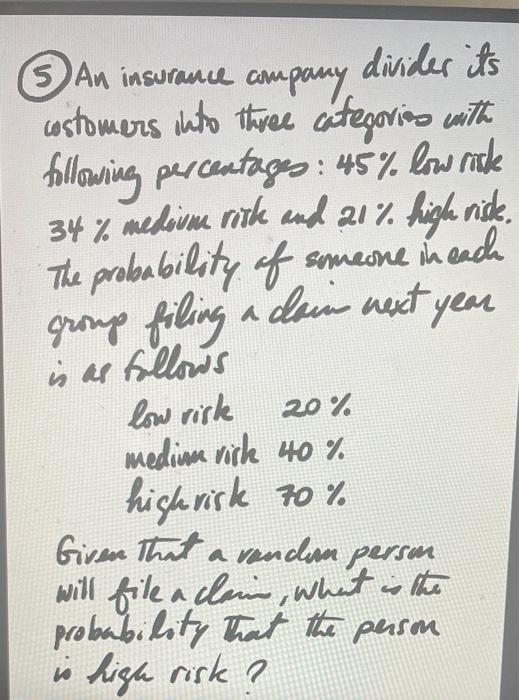 5 An insurance company divides its
costomers into three categories with
following percentages: 45% low risk
34% medium risk and 21% high risk.
The probability of someone in each
group filing a claim next year
is as follows
low risk 20%
medium risk 40%
high risk 70%
Given that a random person
will file a claim, what is the
probability that the person
is high risk?